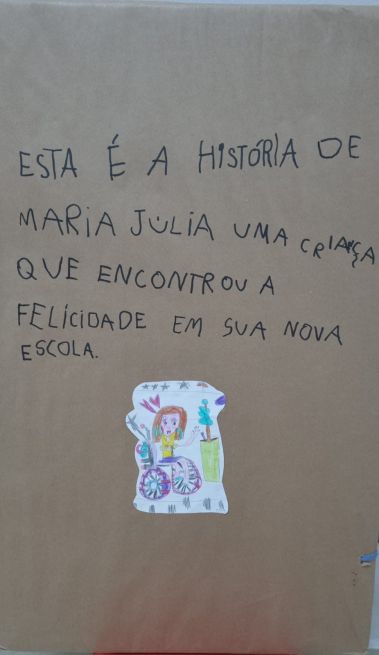 ESTA É A HISTÓRIA DE
MARIA JÚLIA UMA CRIANÇA
QUE ENCONTROU A
FELICIDADE EM SUA NOVA
ESCOLA.